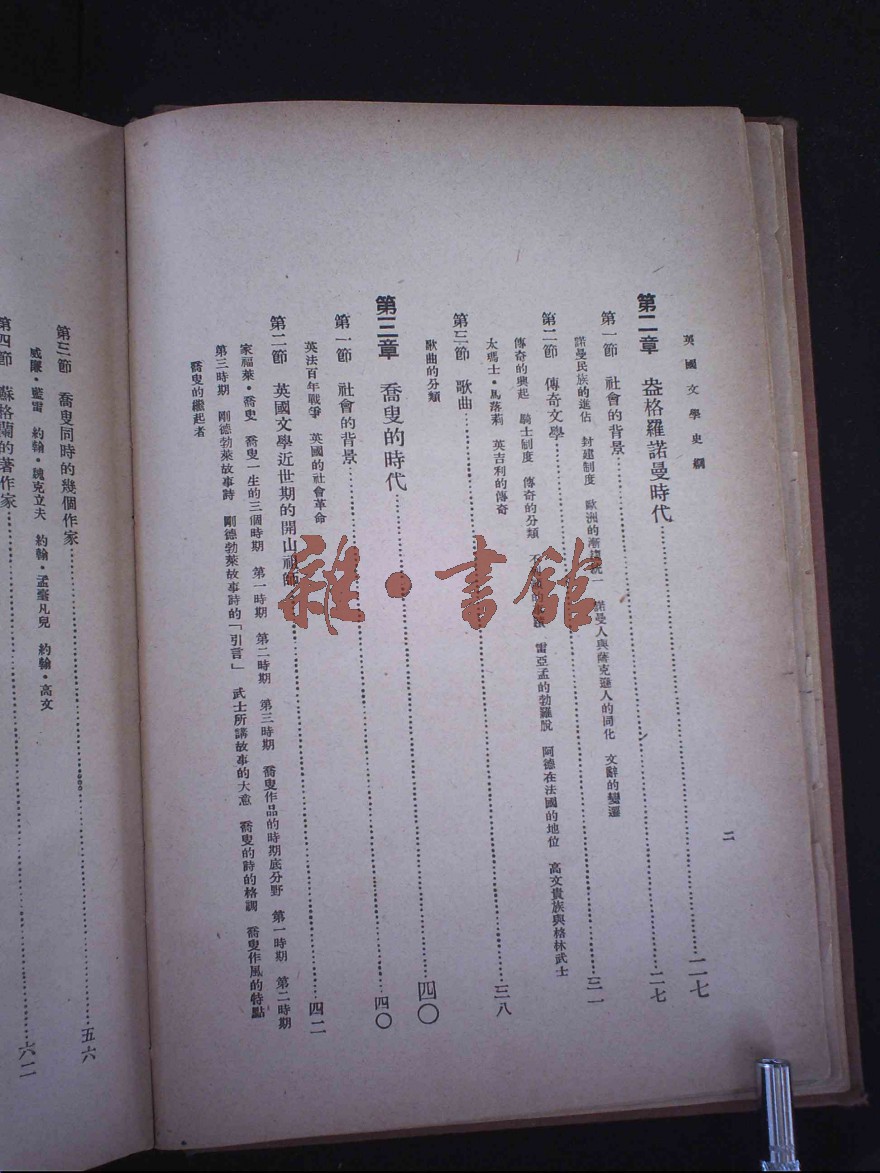 英國文學史綱
二
第二章 盎格羅諾曼時代…………二七
第一節 社會的背景…………二七
諾曼民族的進佔 封建制度 歐洲的漸趨統一 諾曼人與薩克遜人的同化 文辭的變遷
第二節 傳奇文學…………三一
傳奇的興起 騎士制度 傳奇的分類 雷亞孟的勃羅說 阿德在法國的地位 高文貴族與格林武士
太瑪士·馬落莉 英吉利的傳奇
第三節 歌曲…………三八
歌曲的分類
第三章 喬叟的時代…………四〇
第一節 社會的背景…………四〇
英法百年戰爭 英國的社會革命
第二節 英國文學近世期的開山祖師…………四二
家福萊·喬叟 喬叟一生的三個時期 第一時期 第二時期 第三時期 喬叟作品的時期底分野 第一時期 第二時期
第三時期 剛德勃萊故事詩 剛德勃萊故事詩的「引言」 武士所講故事的大意 喬叟的詩的格調 喬叟作風的特點
喬叟的繼起者
第三節 喬叟同時的幾個作家…………五六
威廉·藍雷 約翰·魏克立夫 約翰·孟臺凡兒 約翰·高文
第四節 蘇格蘭的著作家…………六二
雜·書館